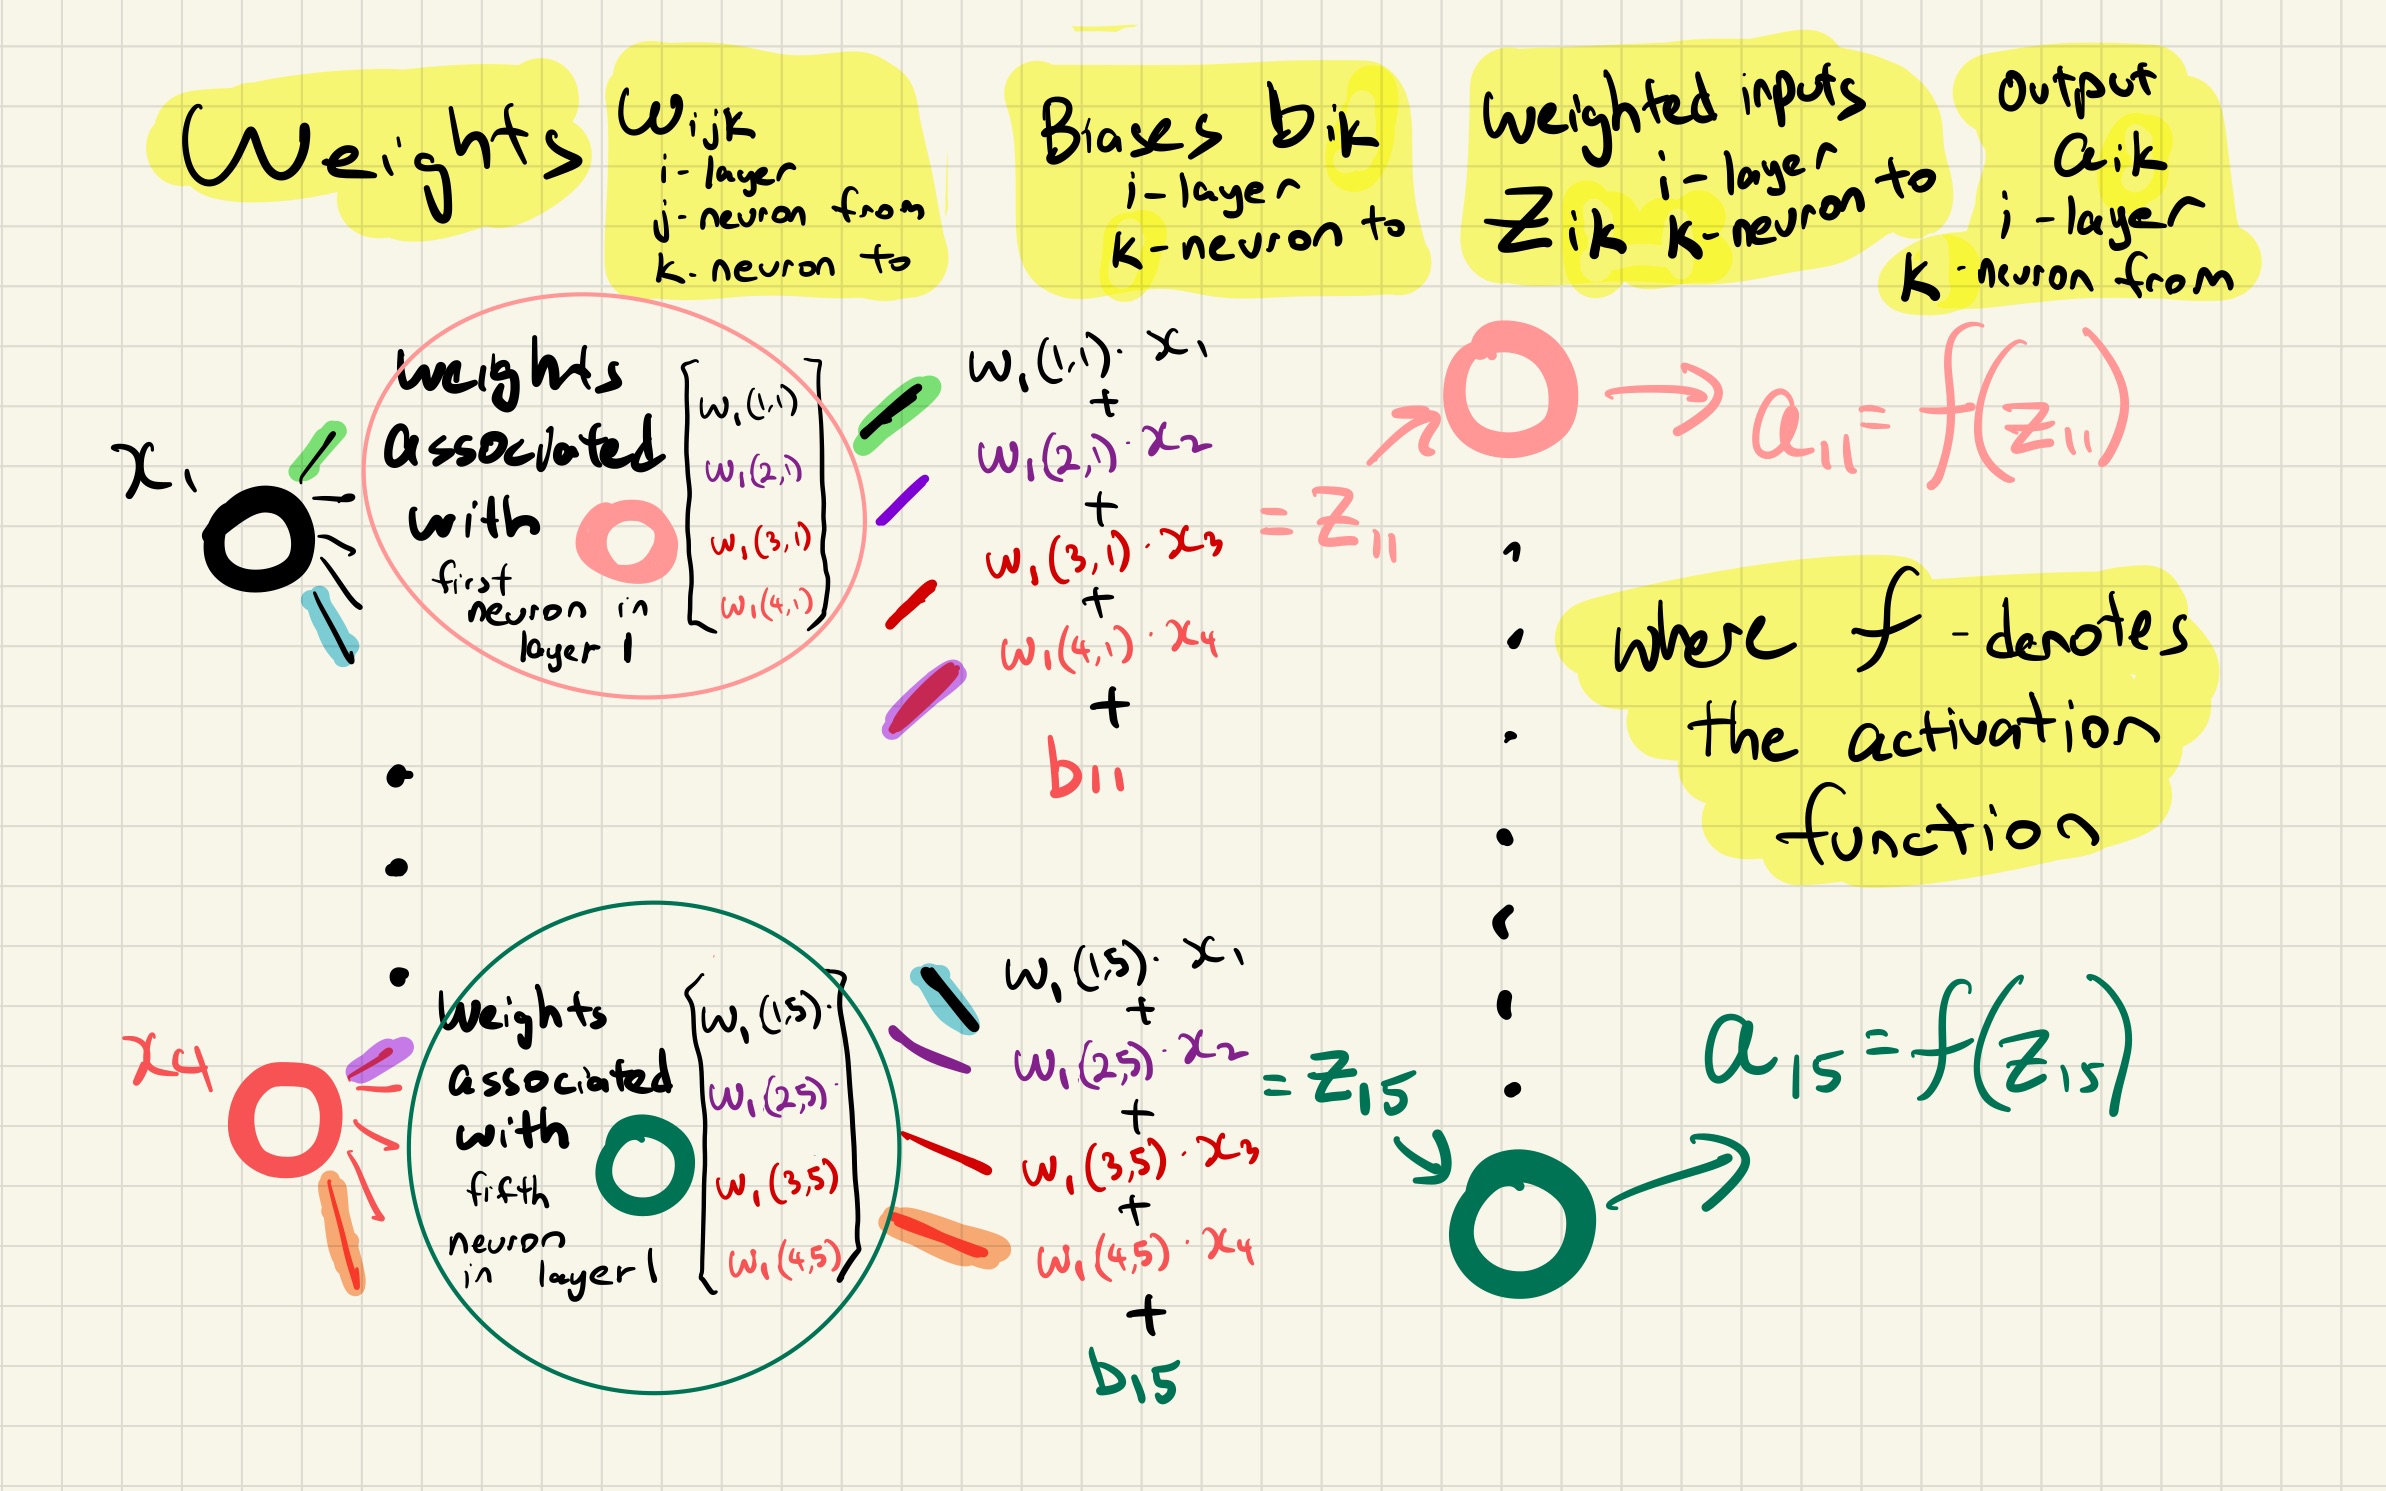 Weights
Wijk
i - layer
j - neuron from
k - neuron to
Biases bik
i - layer
k - neuron to
Weighted inputs
i - layer
Zik k - neuron to
Output
aik
i - layer
k - neuron from
x1
weights
associated
with
first
neuron in
layer 1
w1(1,1)
w1(2,1)
w1(3,1)
w1(4,1)
w1(1,1) · x1
+
w1(2,1) · x2
+
w1(3,1) · x3
+
w1(4,1) · x4
+
b11
= z11
a11 = f(z11)
where f - denotes
the activation
function
x4
weights
associated
with
fifth
neuron
in layer 1
w1(1,5) ·
w1(2,5) ·
w1(3,5)
w1(4,5)
w1(1,5) · x1
+
w1(2,5) · x2
+
w1(3,5) · x3
+
w1(4,5) · x4
+
b15
= z15
a15 = f(z15)